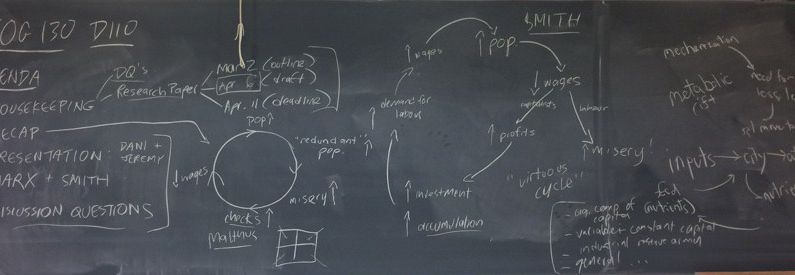 OG 130 D110
ENDA
OUSEKEEPING
DQ's
Research Paper
Mar 2 (outline)
Apr 6 (draft)
Apr. 11 (deadline)
ECAP
RESENTATION: DANI +
JEREMY
ARX + SMITH
ISCUSSION QUESTIONS
POP↑
"redundant" ↑
pop.
misery ↑
checks ↑
Malthus
↓ wages
SMITH
↑ wages
↑ pop.
↓ wages
capitalists
labour
↑ profits
↑ misery!
↑ investment
↑ accumulation
↑ demand for
labour
"virtuous
cycle"
mechanization
metabolic
rift
need for
less l
inputs → city →
food
(nutrients)
- org. comp of
capital
- variable + constant capital
- industrial reserve army
- general ...